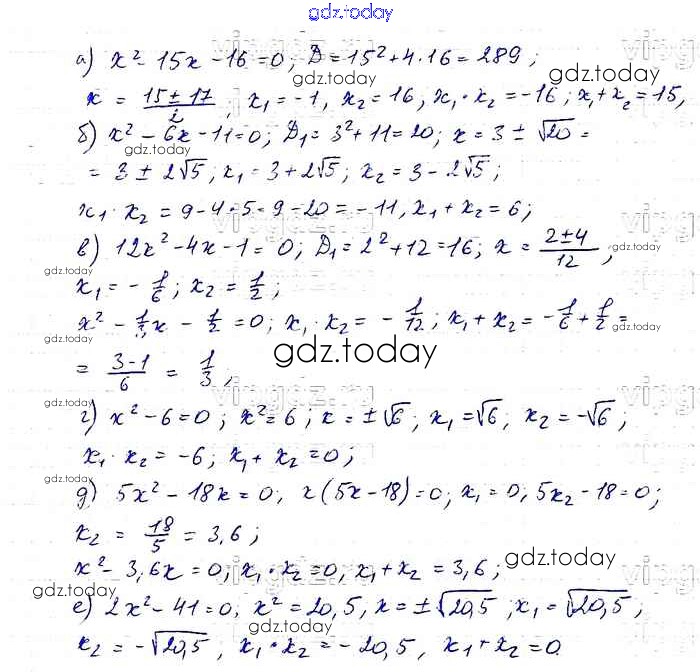 gdz.today
а) x² - 15x - 16 = 0; D = 15² + 4·16 = 289;
gdz.today
gdz.today
x = (15 ± 17)/2, x₁ = -1, x₂ = 16, x₁·x₂ = -16; x₁ + x₂ = 15,
б) x² - 6x - 11 = 0; D₁ = 3² + 11 = 20; x = 3 ± √20 =
gdz.today
gdz.today
= 3 ± 2√5; x₁ = 3 + 2√5; x₂ = 3 - 2√5;
x₁·x₂ = 9 - 4·5 = 9 - 20 = -11, x₁ + x₂ = 6;
gdz.today
в) 12x² - 4x - 1 = 0; D₁ = 2² + 12 = 16; x = (2 ± 4)/12,
gdz.today
gdz.today
x₁ = -1/6; x₂ = 1/2;
x² - 1/3x - 1/2 = 0; x₁·x₂ = -1/12; x₁ + x₂ = -1/6 + 1/2 =
gdz.today
gdz.today
gdz.today
= (3-1)/6 = 1/3,
г) x² - 6 = 0; x² = 6; x = ±√6; x₁ = √6, x₂ = -√6;
gdz.today
x₁·x₂ = -6; x₁ + x₂ = 0;
gdz.today
gdz.today
д) 5x² - 18x = 0, x(5x - 18) = 0; x₁ = 0, 5x₂ - 18 = 0;
gdz.today
x₂ = 18/5 = 3,6;
gdz.today
x² - 3,6x = 0, x₁·x₂ = 0, x₁ + x₂ = 3,6;
gdz.today
е) 2x² - 41 = 0; x² = 20,5, x = ±√20,5; x₁ = √20,5;
gdz.today
gdz.today
x₂ = -√20,5, x₁·x₂ = -20,5, x₁ + x₂ = 0.